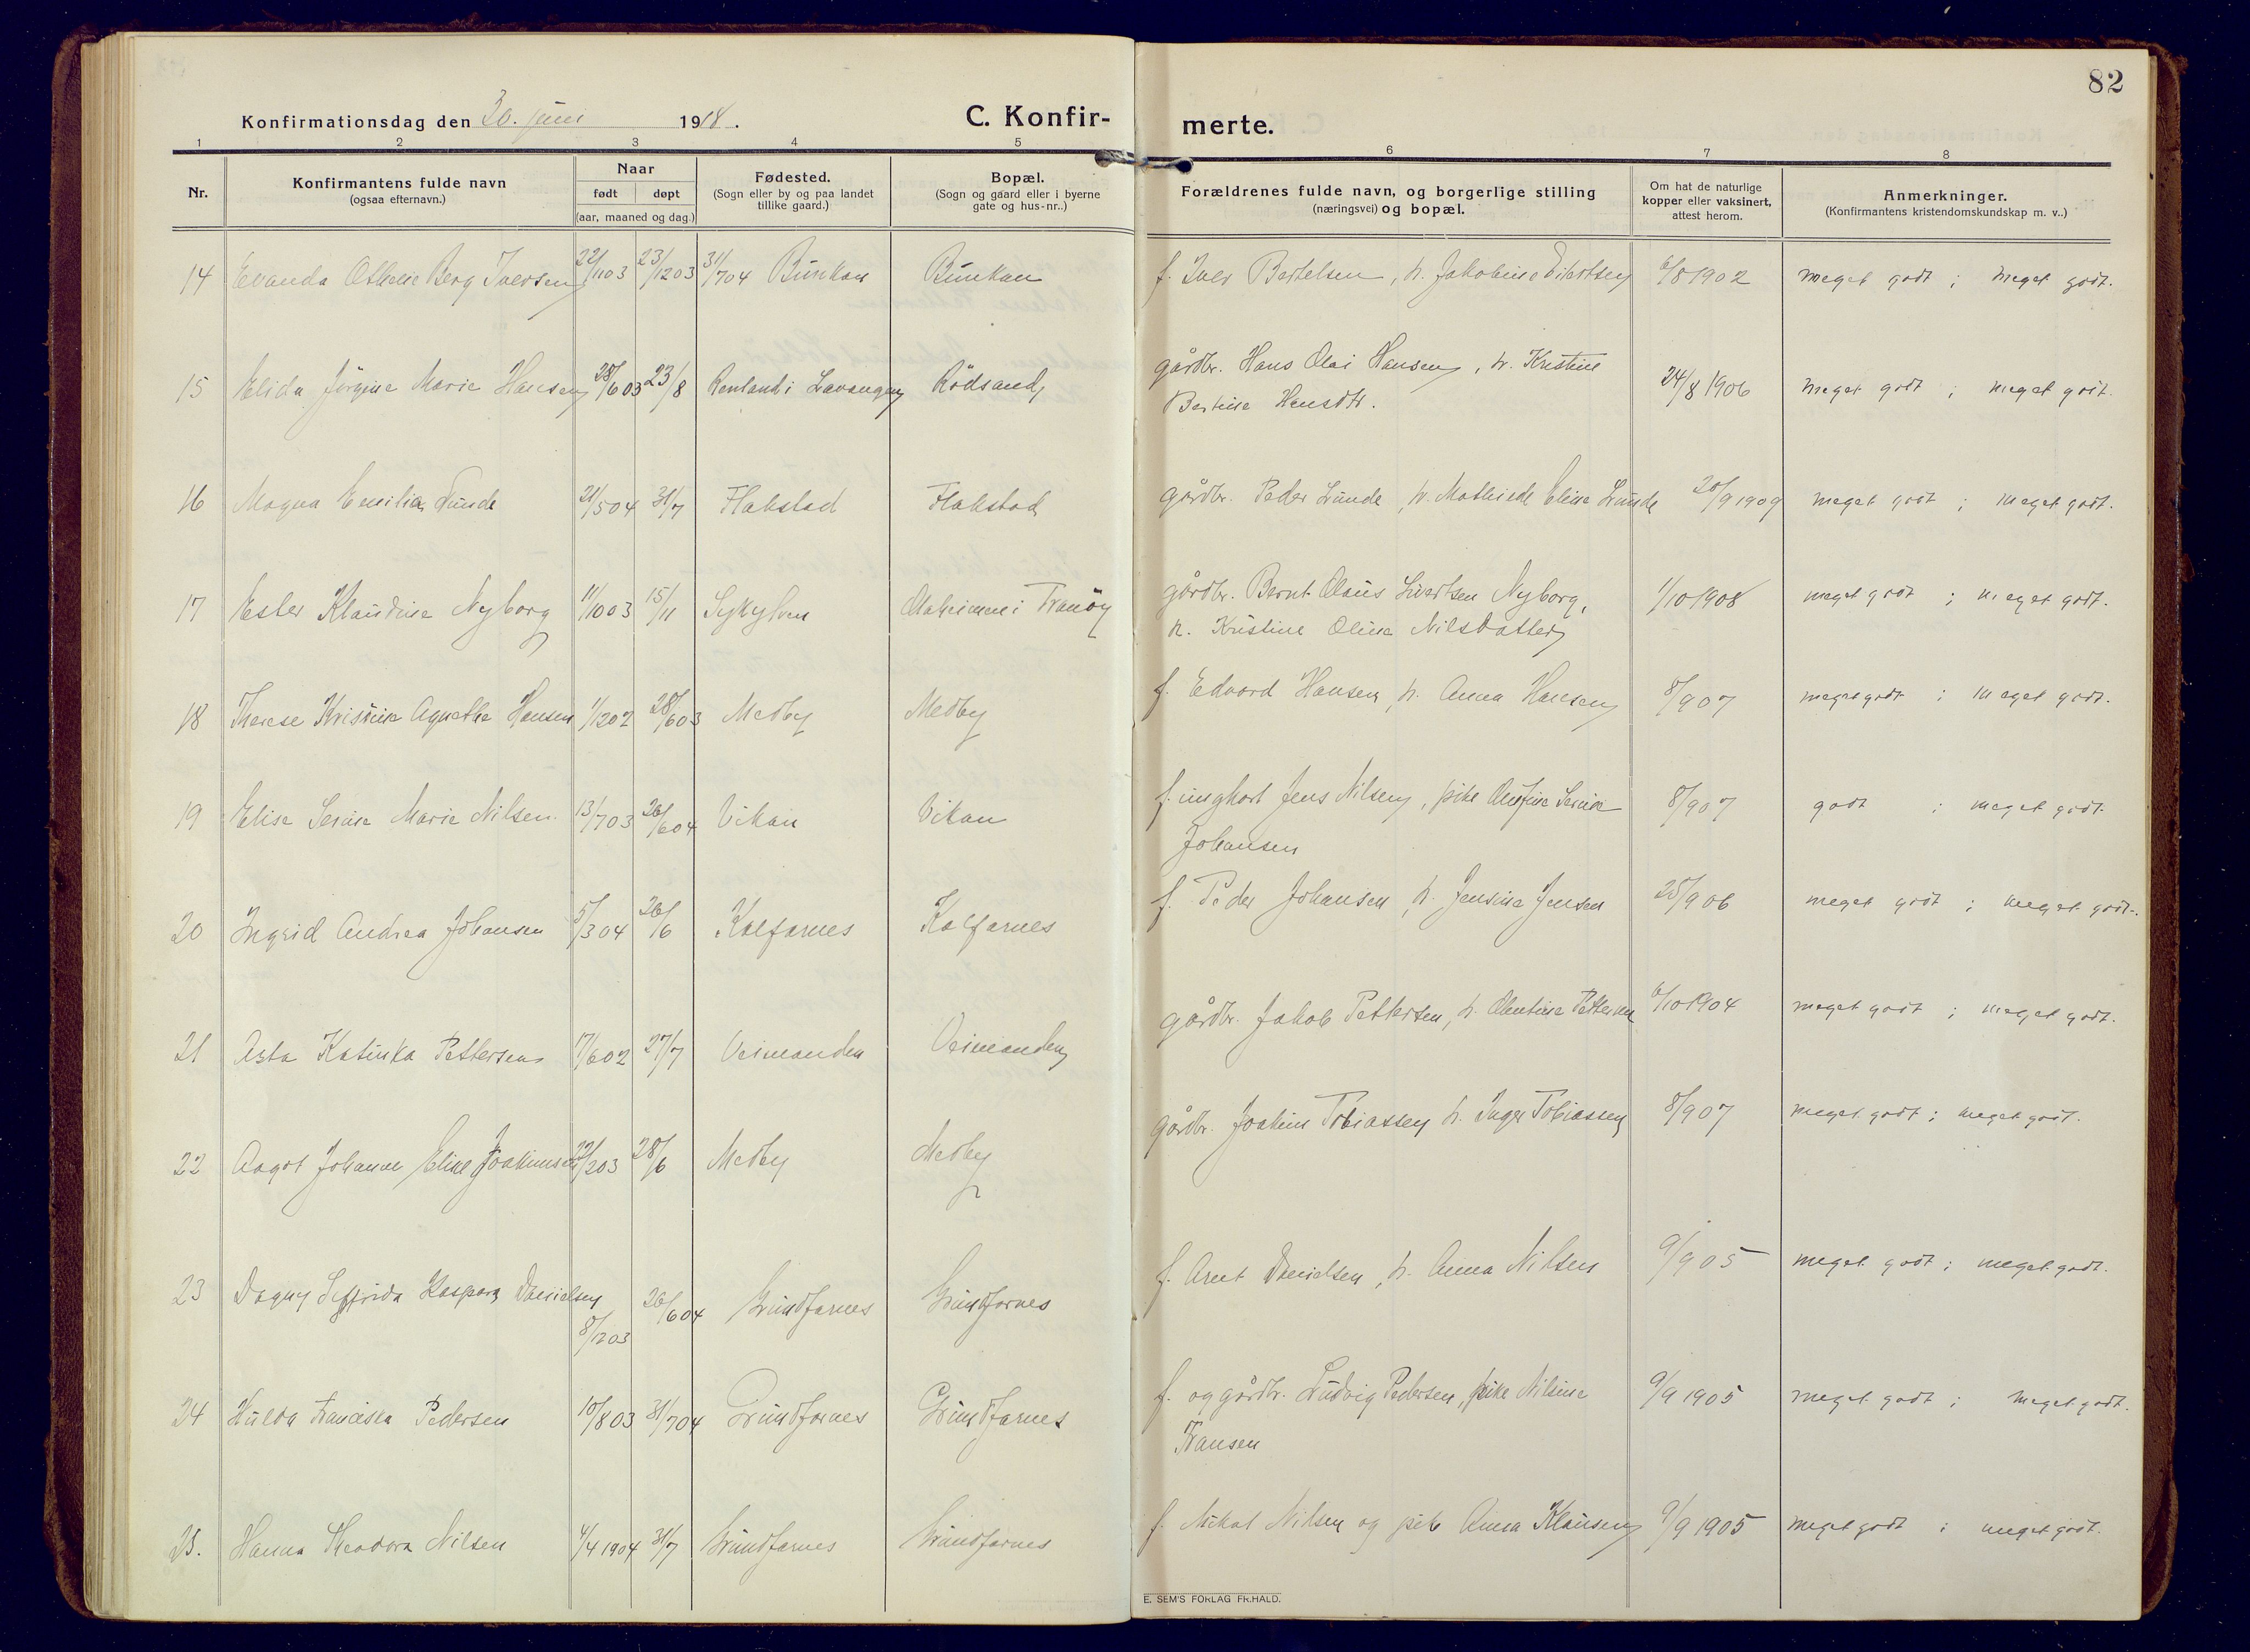 82
Konfirmationsdag den 30. juni 1918. C. Konfir-
merte.
1 2 3 4 5 6 7 8
Nr.
Konfirmantens fulde navn
(ogsaa efternavn.)
Naar
født døpt
(aar, maaned og dag.)
Fødested.
(Sogn eller by og paa landet
tillike gaard.)
Bopæl.
(Sogn og gaard eller i byerne
gate og hus-nr..)
Forældrenes fulde navn, og borgerlige stilling
(næringsvei) og bopæl.
Om hat de naturlige
kopper eller vaksinert,
attest herom.
Anmerkninger.
(Konfirmantens kristendomskundskap m. v..)
14 Evanda Othelie Berg Iversen 22/1103 23/1203 31/704 Bunkan Bunkan f. Iver Bertelsen, h. Jakobine Eilertsen 6/8 1902 meget godt ; meget godt.
15 Elida Jørgine Marie Hansen 28/603 23/8 Renland i Lavangen Rödsand gårdbr. Hans Olai Hansen, h. Kristine
Bertine Hansdtr. 24/8 1906 meget godt ; meget godt.
16 Magna Emilie Lunde 21/504 31/7 Flakstad Flakstad gårdbr. Peder Lunde, h. Mathilde Eline Lunde 20/9 1909 meget godt ; meget godt.
17 Ester Klaudine Nyborg 11/1003 15/11 Sykylven i Tranöy gårdbr. Bernt Olaus Sivertsen Nyborg,
h. Kristine Oline Nilsdatter 1/10 1908 meget godt ; meget godt.
18 Therese Kristine Agnethe Hansen 1/1202 28/603 Medby Medby f. Edvard Hansen, h. Anna Hansen 8/907 meget godt ; meget godt.
19 Elise Serine Marie Nilsen 13/703 26/604 Vikan Vikan f. ungkarl Jens Nilsen, pike Serine
Johansen 8/907 godt ; meget godt.
20 Ingrid Andrea Johansen 5/304 26/6 Kalfarnes Kalfarnes f. Peder Johansen, h. Jensine Jensen 25/906 meget godt ; meget godt.
21 Asta Katinka Pettersen 17/602 27/7 Veimanden Veimanden gårdbr. Jakob Pettersen, h. Olentine Pettersen 6/10 1904 meget godt ; meget godt.
22 Aagot Johanne Eline Joakimsen 22/203 28/6 Medby Medby gårdbr. Joakim Tobiassen h. Inger Tobiassen 8/907 meget godt ; meget godt.
23 Dagny Kaspara Danielsen
8/1203 26/604 Grundfarnes Grundfarnes f. Arnt Danielsen, h. Anna Nilsen 9/905 meget godt ; meget godt.
24 Hulda Franciska Pedersen 10/803 31/704 Grundfarnes Grundfarnes f. og gårdbr. Ludvig Pedersen, pike Nilsine
Fransen 9/9 1905 meget godt ; meget godt.
25. Hanna Theodora Nilsen 4/4 1904 31/7 Grundfarnes Grundfarnes f. Mikal Nilsen og pike Anna Klausen 9/9 1905 meget godt ; meget godt.
E. SEM'S FORLAG FR.HALD.